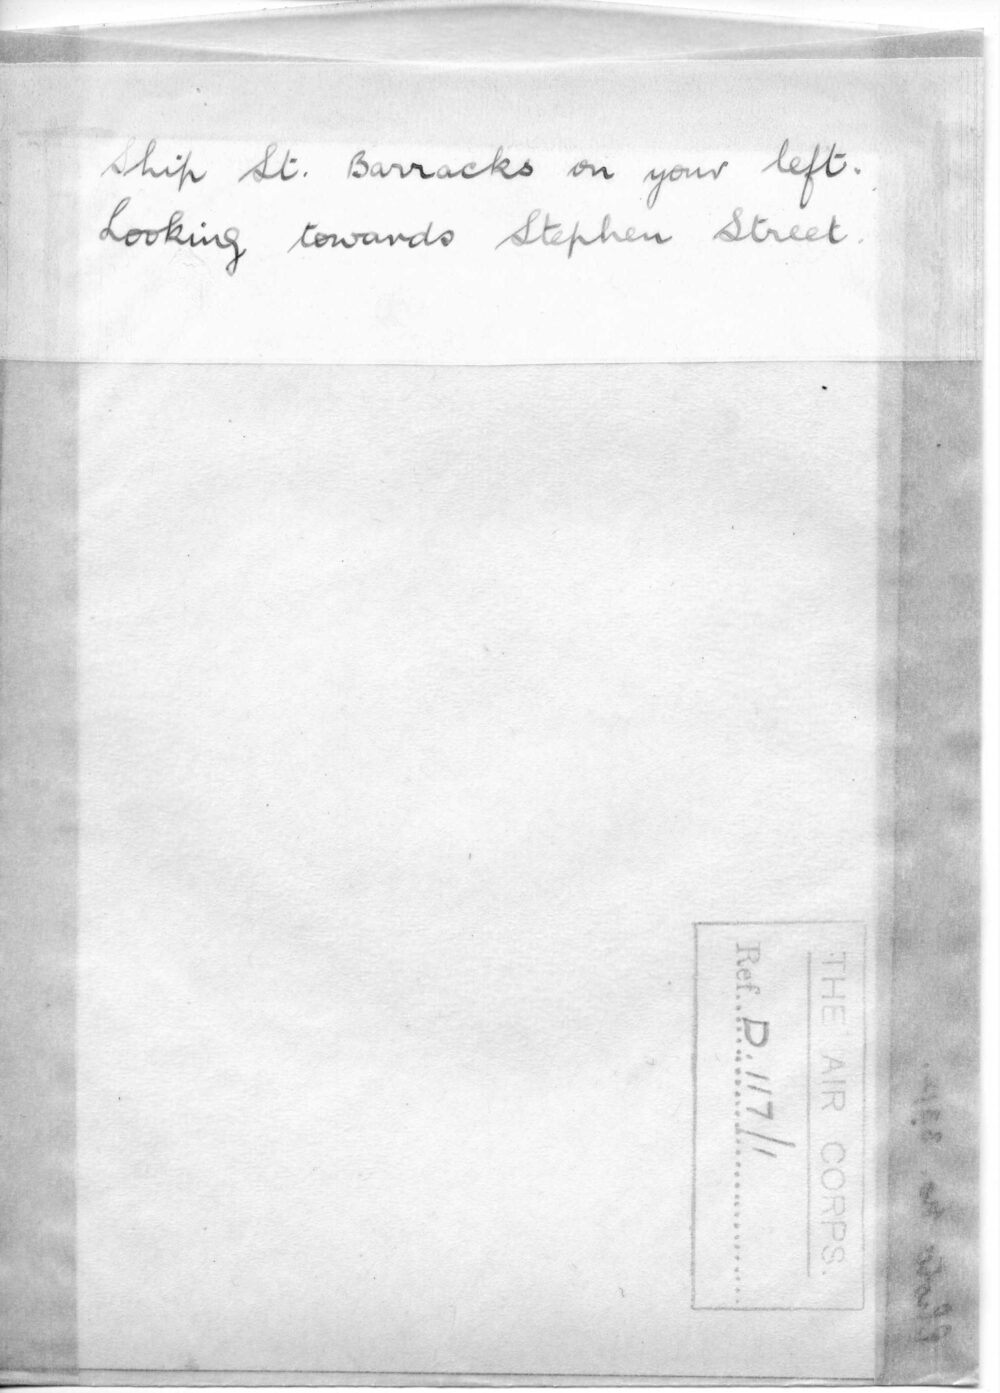 Ship St. Barracks on your left.
Looking towards Stephen Street.
THE AIR CORPS.
Ref. D.117/1